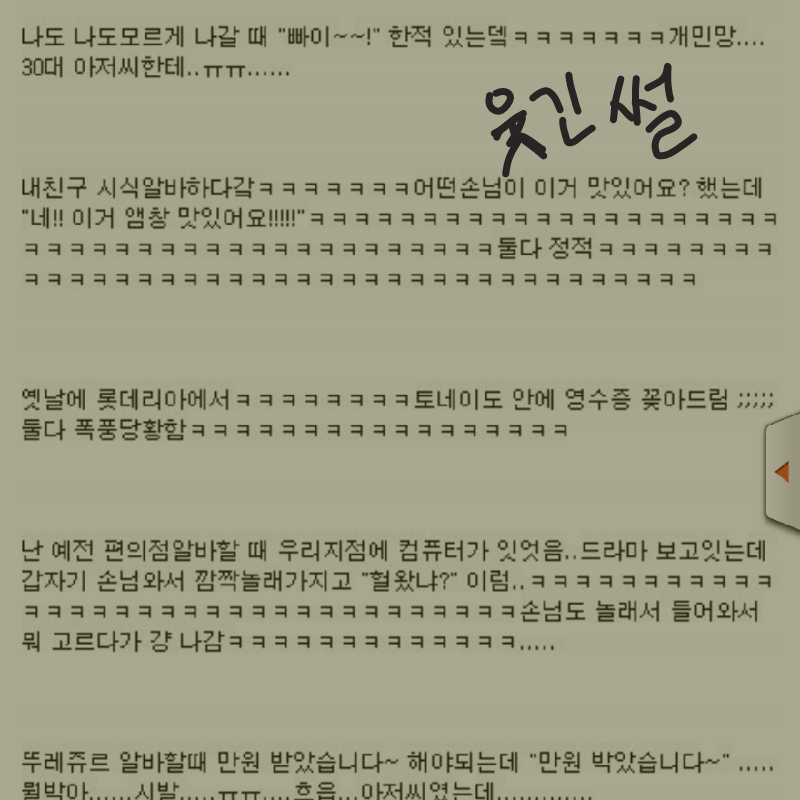 나도 나도모르게 나갈 때 "빠이~~!" 한적 있는뎈ㅋㅋㅋㅋㅋㅋㅋ개민망....
30대 아저씨한테..ㅠㅠ......
웃긴 썰
내친구 시식알바하다갘ㅋㅋㅋㅋㅋㅋㅋ어떤손님이 이거 맛있어요? 했는데
"네!! 이거 앰창 맛있어요!!!!!"ㅋㅋㅋㅋㅋㅋㅋㅋㅋㅋㅋㅋㅋㅋㅋㅋㅋㅋㅋㅋㅋ
ㅋㅋㅋㅋㅋㅋㅋㅋㅋㅋㅋㅋㅋㅋㅋㅋㅋㅋㅋㅋㅋ둘다 정적ㅋㅋㅋㅋㅋㅋㅋㅋ
ㅋㅋㅋㅋㅋㅋㅋㅋㅋㅋㅋㅋㅋㅋㅋㅋㅋㅋㅋㅋㅋㅋㅋㅋㅋㅋㅋㅋㅋㅋ
옛날에 롯데리아에서ㅋㅋㅋㅋㅋㅋㅋㅋ토네이도 안에 영수증 꽂아드림 ;;;;;
둘다 폭풍당황함ㅋㅋㅋㅋㅋㅋㅋㅋㅋㅋㅋㅋㅋㅋㅋㅋㅋ
난 예전 편의점알바할 때 우리지점에 컴퓨터가 잇엇음..드라마 보고잇는데
갑자기 손님와서 깜짝놀래가지고 "헐왔냐?" 이럼..ㅋㅋㅋㅋㅋㅋㅋㅋㅋㅋㅋ
ㅋㅋㅋㅋㅋㅋㅋㅋㅋㅋㅋㅋㅋㅋㅋㅋㅋㅋㅋㅋㅋㅋ손님도 놀래서 들어와서
뭐 고르다가 걍 나감ㅋㅋㅋㅋㅋㅋㅋㅋㅋㅋㅋㅋㅋ.....
뚜레쥬르 알바할때 만원 받았습니다~ 해야되는데 "만원 박았습니다~" .....
뭘박아......시발.....ㅠㅠ....흐읍...아저씨였는데.............